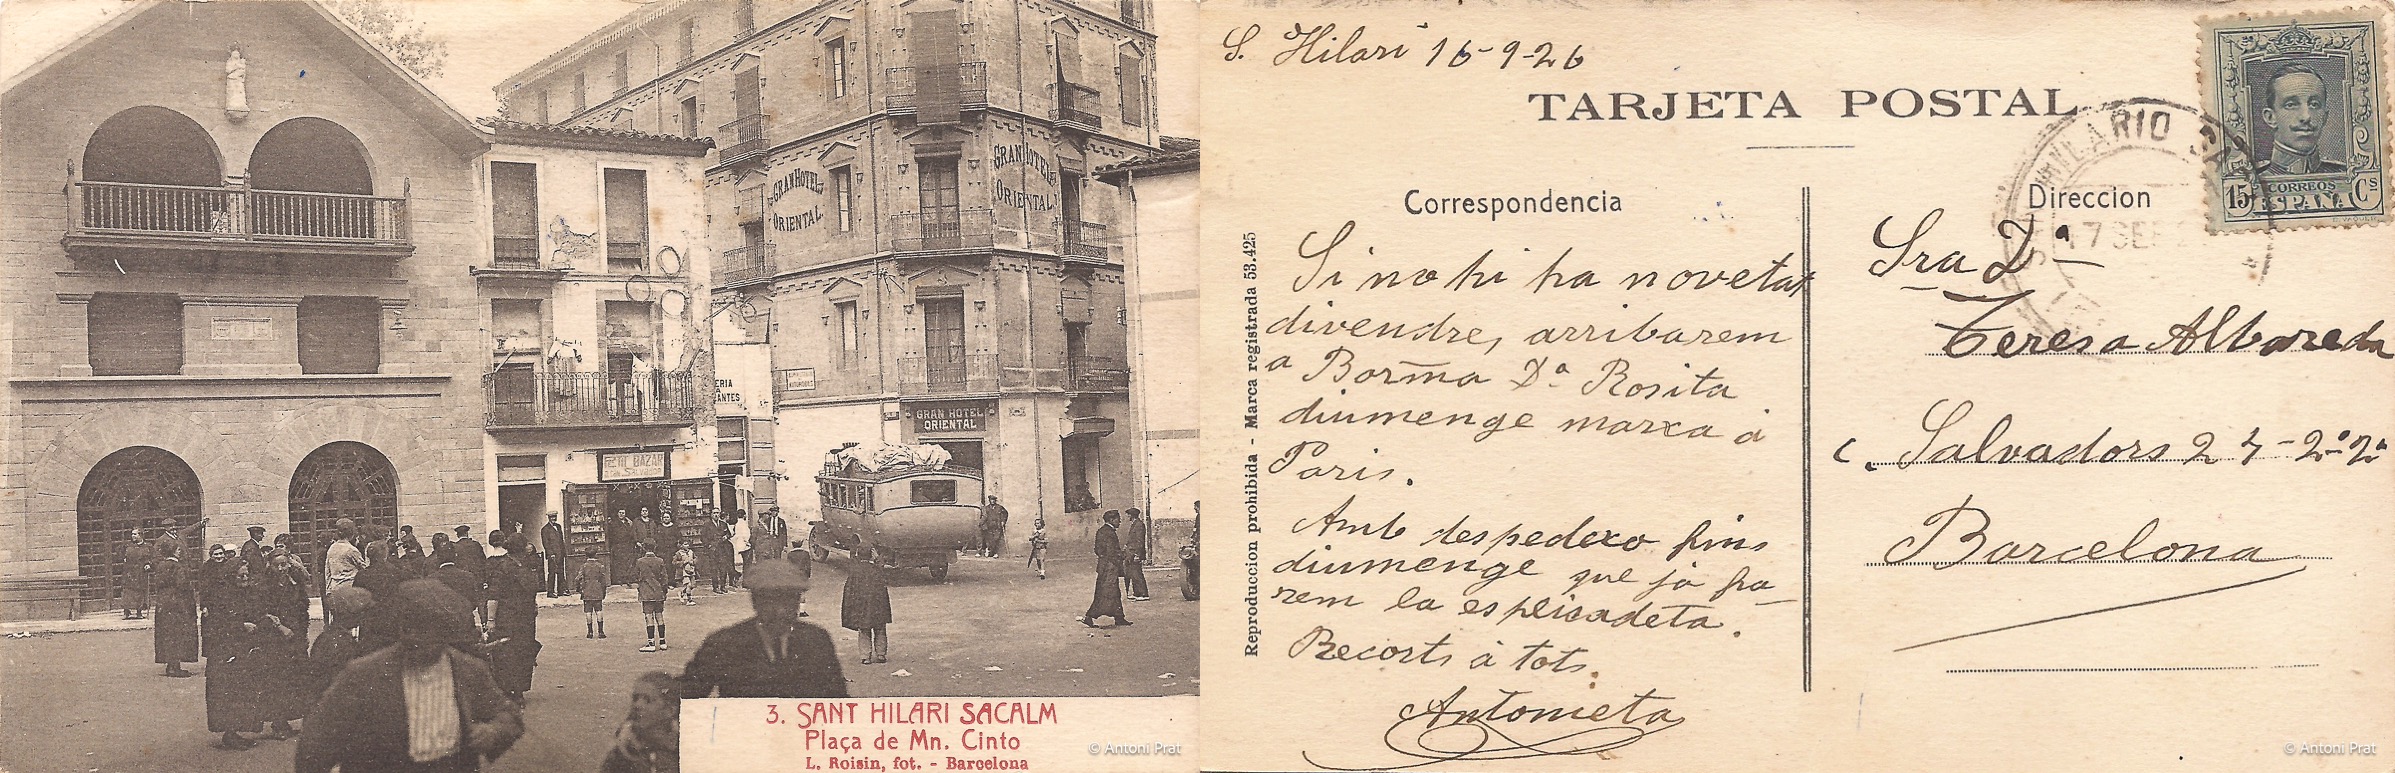 GRAN HOTEL
ORIENTAL
GRAN HOTEL
ORIENTAL
GRAN HOTEL
ORIENTAL
PETIT BAZAR
Salvador
3. SANT HILARI SACALM
Plaça de Mn. Cinto
L. Roisin, fot. - Barcelona
© Antoni Prat
S. Hilari 16-9-26
TARJETA POSTAL
Correspondencia
Si no hi ha novetat
divendre, arribarem
a Borma Dª Rosita
diumenge marxa á
Paris.
Amb despedexo fins
diumenge que já fa-
rem la esplicadeta.
Recorts á tots.
Antonieta
Reproduccion prohibida - Marca registrada 53.425
Direccion
Sra Dª
Teresa Albareda
c. Salvadors 24-2º-2ª
Barcelona
HILARIO SA
17 SEP
15 CORREOS Cs
ESPAÑA
© Antoni Prat